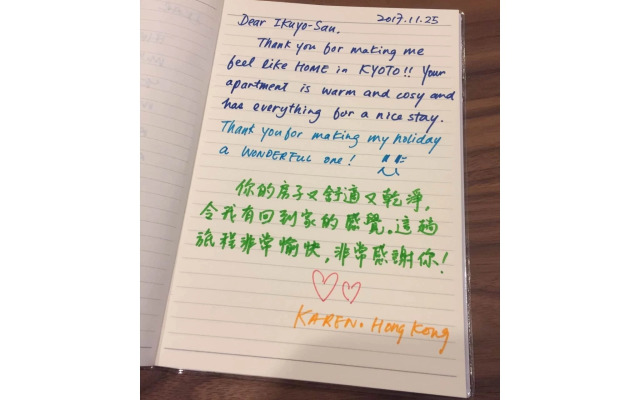 2017.11.25
Dear Ikuyo-San,
Thank you for making me
feel like HOME in KYOTO!! Your
apartment is warm and cosy and
has everything for a nice stay.
Thank you for making my holiday
a WONDERFUL one!
你的房子又舒適又乾淨,
令我有回到家的感覺。這趟
旅程非常愉快,非常感謝你!
KAREN. Hong Kong